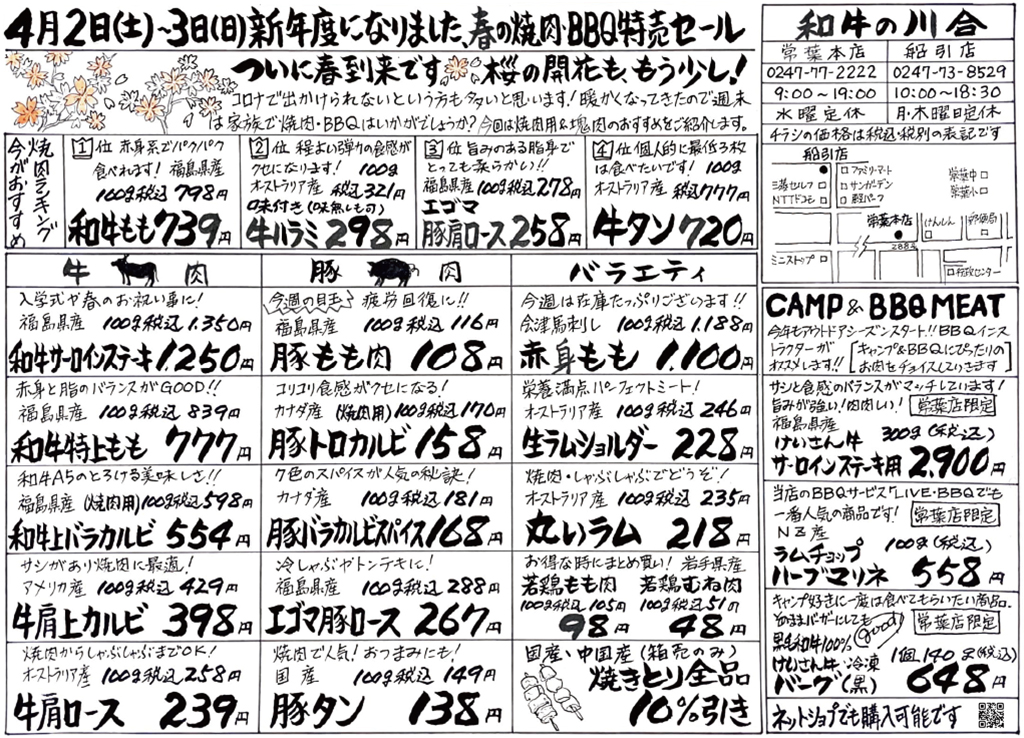 4月2日(土)~3日(日)新年度になりました、春の焼肉・BBQ特売セール
ついに春到来です 桜の開花も、もう少し!
コロナで出かけられないという方も多いと思います!暖かくなってきたので週末
は家族で焼肉・BBQはいかがでしょうか?今回は焼肉用&塊肉のおすすめをご紹介します。
焼肉ランキング
今がおすすめ
1位 赤身系でパクパク
食べれます! 福島県産
100g税込798円
和牛もも739円
2位 程よい弾力の食感が
クセになります! 100g
オーストラリア産 税込321円
味付き(味無しも可)
牛ハラミ298円
3位 旨みのある脂身で
とっても柔らかい!!
福島県産 100g税込278円
エゴマ
豚肩ロース258円
4位 個人的に最低3枚
は食べたいです! 100g
オーストラリア産 税込777円
牛タン720円
牛肉
入学式や春のお祝い事に!
福島県産 100g税込1.350円
和牛サーロインステーキ1.250円
赤身と脂のバランスがGOOD!!
福島県産 100g税込839円
和牛特上もも777円
和牛A5のとろける美味しさ!!
福島県産(焼肉用)100g税込598円
和牛上バラカルビ554円
サシがあり焼肉に最適!
アメリカ産 100g税込429円
牛肩上カルビ398円
焼肉からしゃぶしゃぶまでOK!
オーストラリア産 100g税込258円
牛肩ロース239円
豚肉
今週の目玉 疲労回復に!!
福島県産 100g税込116円
豚もも肉108円
コリコリ食感がクセになる!
カナダ産(焼肉用)100g税込170円
豚トロカルビ158円
7色のスパイスが人気の秘訣!
カナダ産 100g税込181円
豚バラカルビスパイス168円
冷しゃぶやトンテキに!
福島県産 100g税込288円
エゴマ豚ロース267円
焼肉で人気!おつまみにも!
国産 100g税込149円
豚タン138円
バラエティ
今週は在庫たっぷりございます!!
会津馬刺し 100g税込1.188円
赤身もも1.100円
栄養満点パーフェクトミート!
オーストラリア産 100g税込246円
生ラムショルダー228円
焼肉・しゃぶしゃぶでどうぞ!
オーストラリア産 100g税込235円
丸いラム218円
お得な時にまとめ買い! 岩手県産
若鶏もも肉 若鶏むね肉
100g税込105円 100g税込51円
98円 48円
国産・中国産(箱売のみ)
焼きとり全品
10%引き
和牛の川合
常葉本店 船引店
0247-77-2222 0247-73-8529
9:00~19:00 10:00~18:30
水曜定休 月・木曜日定休
チラシの価格は税込税別の表記です
船引店
ファミリーマート
三春セルフ サンガーデン
NTTドコモ
常葉中
常葉小
常葉本店
けんしん
郵便局
288号
ミニストップ
行政センター
CAMP & BBQ MEAT
今年もアウトドアシーズンスタート!!BBQインス
トラクターが
オススメします!!
キャンプ&BBQにぴったりの
お肉をチョイスしていきます
サシと食感のバランスがマッチしています!
旨みが強い!肉肉しい! 常葉店限定
福島県産
けいさん牛 300g(税込)
サーロインステーキ用2.900円
当店のBBQサービス「LIVE・BBQでも
一番人気の商品です! 常葉店限定
NZ産
ラムチョップ 100g(税込)
ハーブマリネ558円
キャンプ好きに一度は食べてもらいたい商品。
そのままバーガーにしても good 常葉店限定
黒毛和牛100%
けいさん牛・冷凍 1個140g(税込)
バーグ(黒)648円
ネットショップでも購入可能です